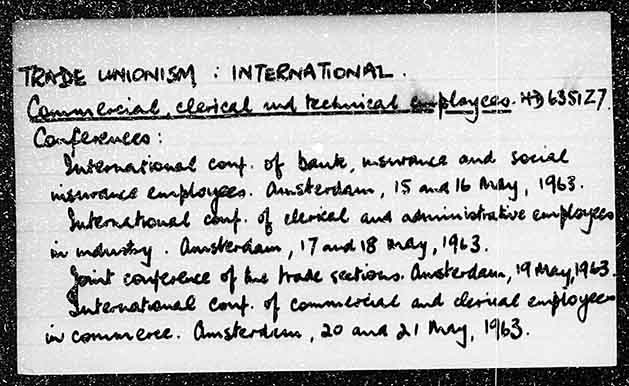 TRADE UNIONISM : INTERNATIONAL.
Commercial, clerical and technical employees. HD 6351Z7.
Conferences :
International conf. of bank, insurance and social
insurance employees. Amsterdam, 15 and 16 May, 1963.
International conf. of clerical and administrative employees
in industry. Amsterdam, 17 and 18 May, 1963.
Joint conference of the trade sections. Amsterdam, 19 May, 1963.
International conf. of commercial and clerical employees
in commerce. Amsterdam, 20 and 21 May, 1963.